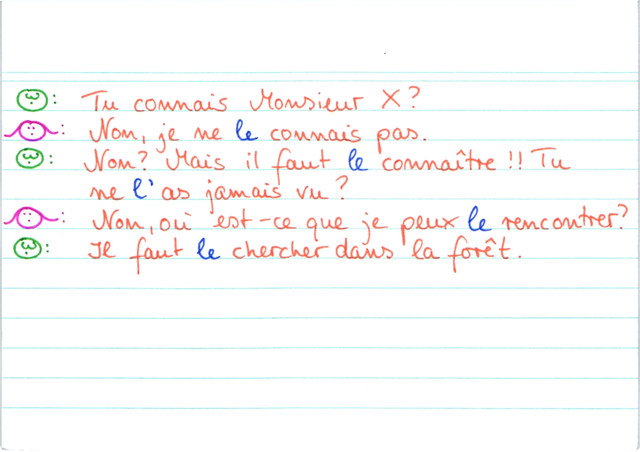 : Tu connais Monsieur X?
: Non, je ne le connais pas.
: Non? Mais il faut le connaître!! Tu
ne l'as jamais vu?
: Non, où est-ce que je peux le rencontrer?
: Il faut le chercher dans la forêt.